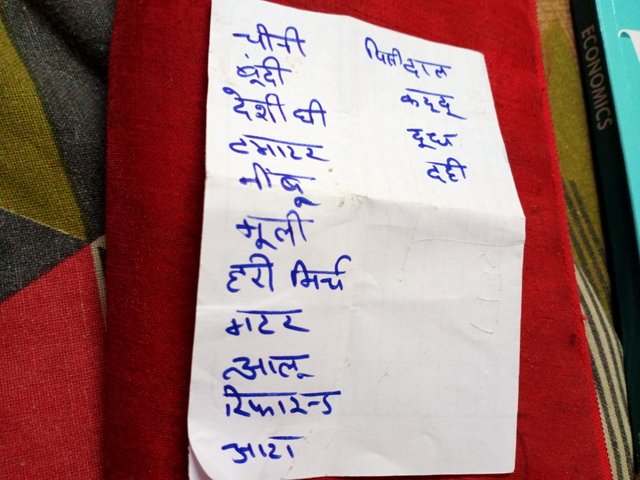 चीनी
बूंदी
देशी घी
टमाटर
नीबू
मूली
हरी मिर्च
मटर
आलू
रिफाइन्ड
आटा
पिली दाल
कद्दू
दूध
दही
ECONOMICS